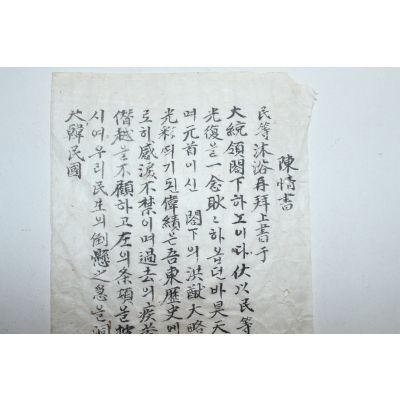 陳情書
民等沐浴再拜上書于
大統領閣下하오이다伏以民等
光復을一念耿々하옵던바昊天
며元首이신 閣下의洪猷大略
光彩띄기된偉績은吾東歷史에
로히感淚不禁이며過去의疾苦
僭越을不顧하고左의条碩을披
시여우리民生의倒懸之急을
大韓民國